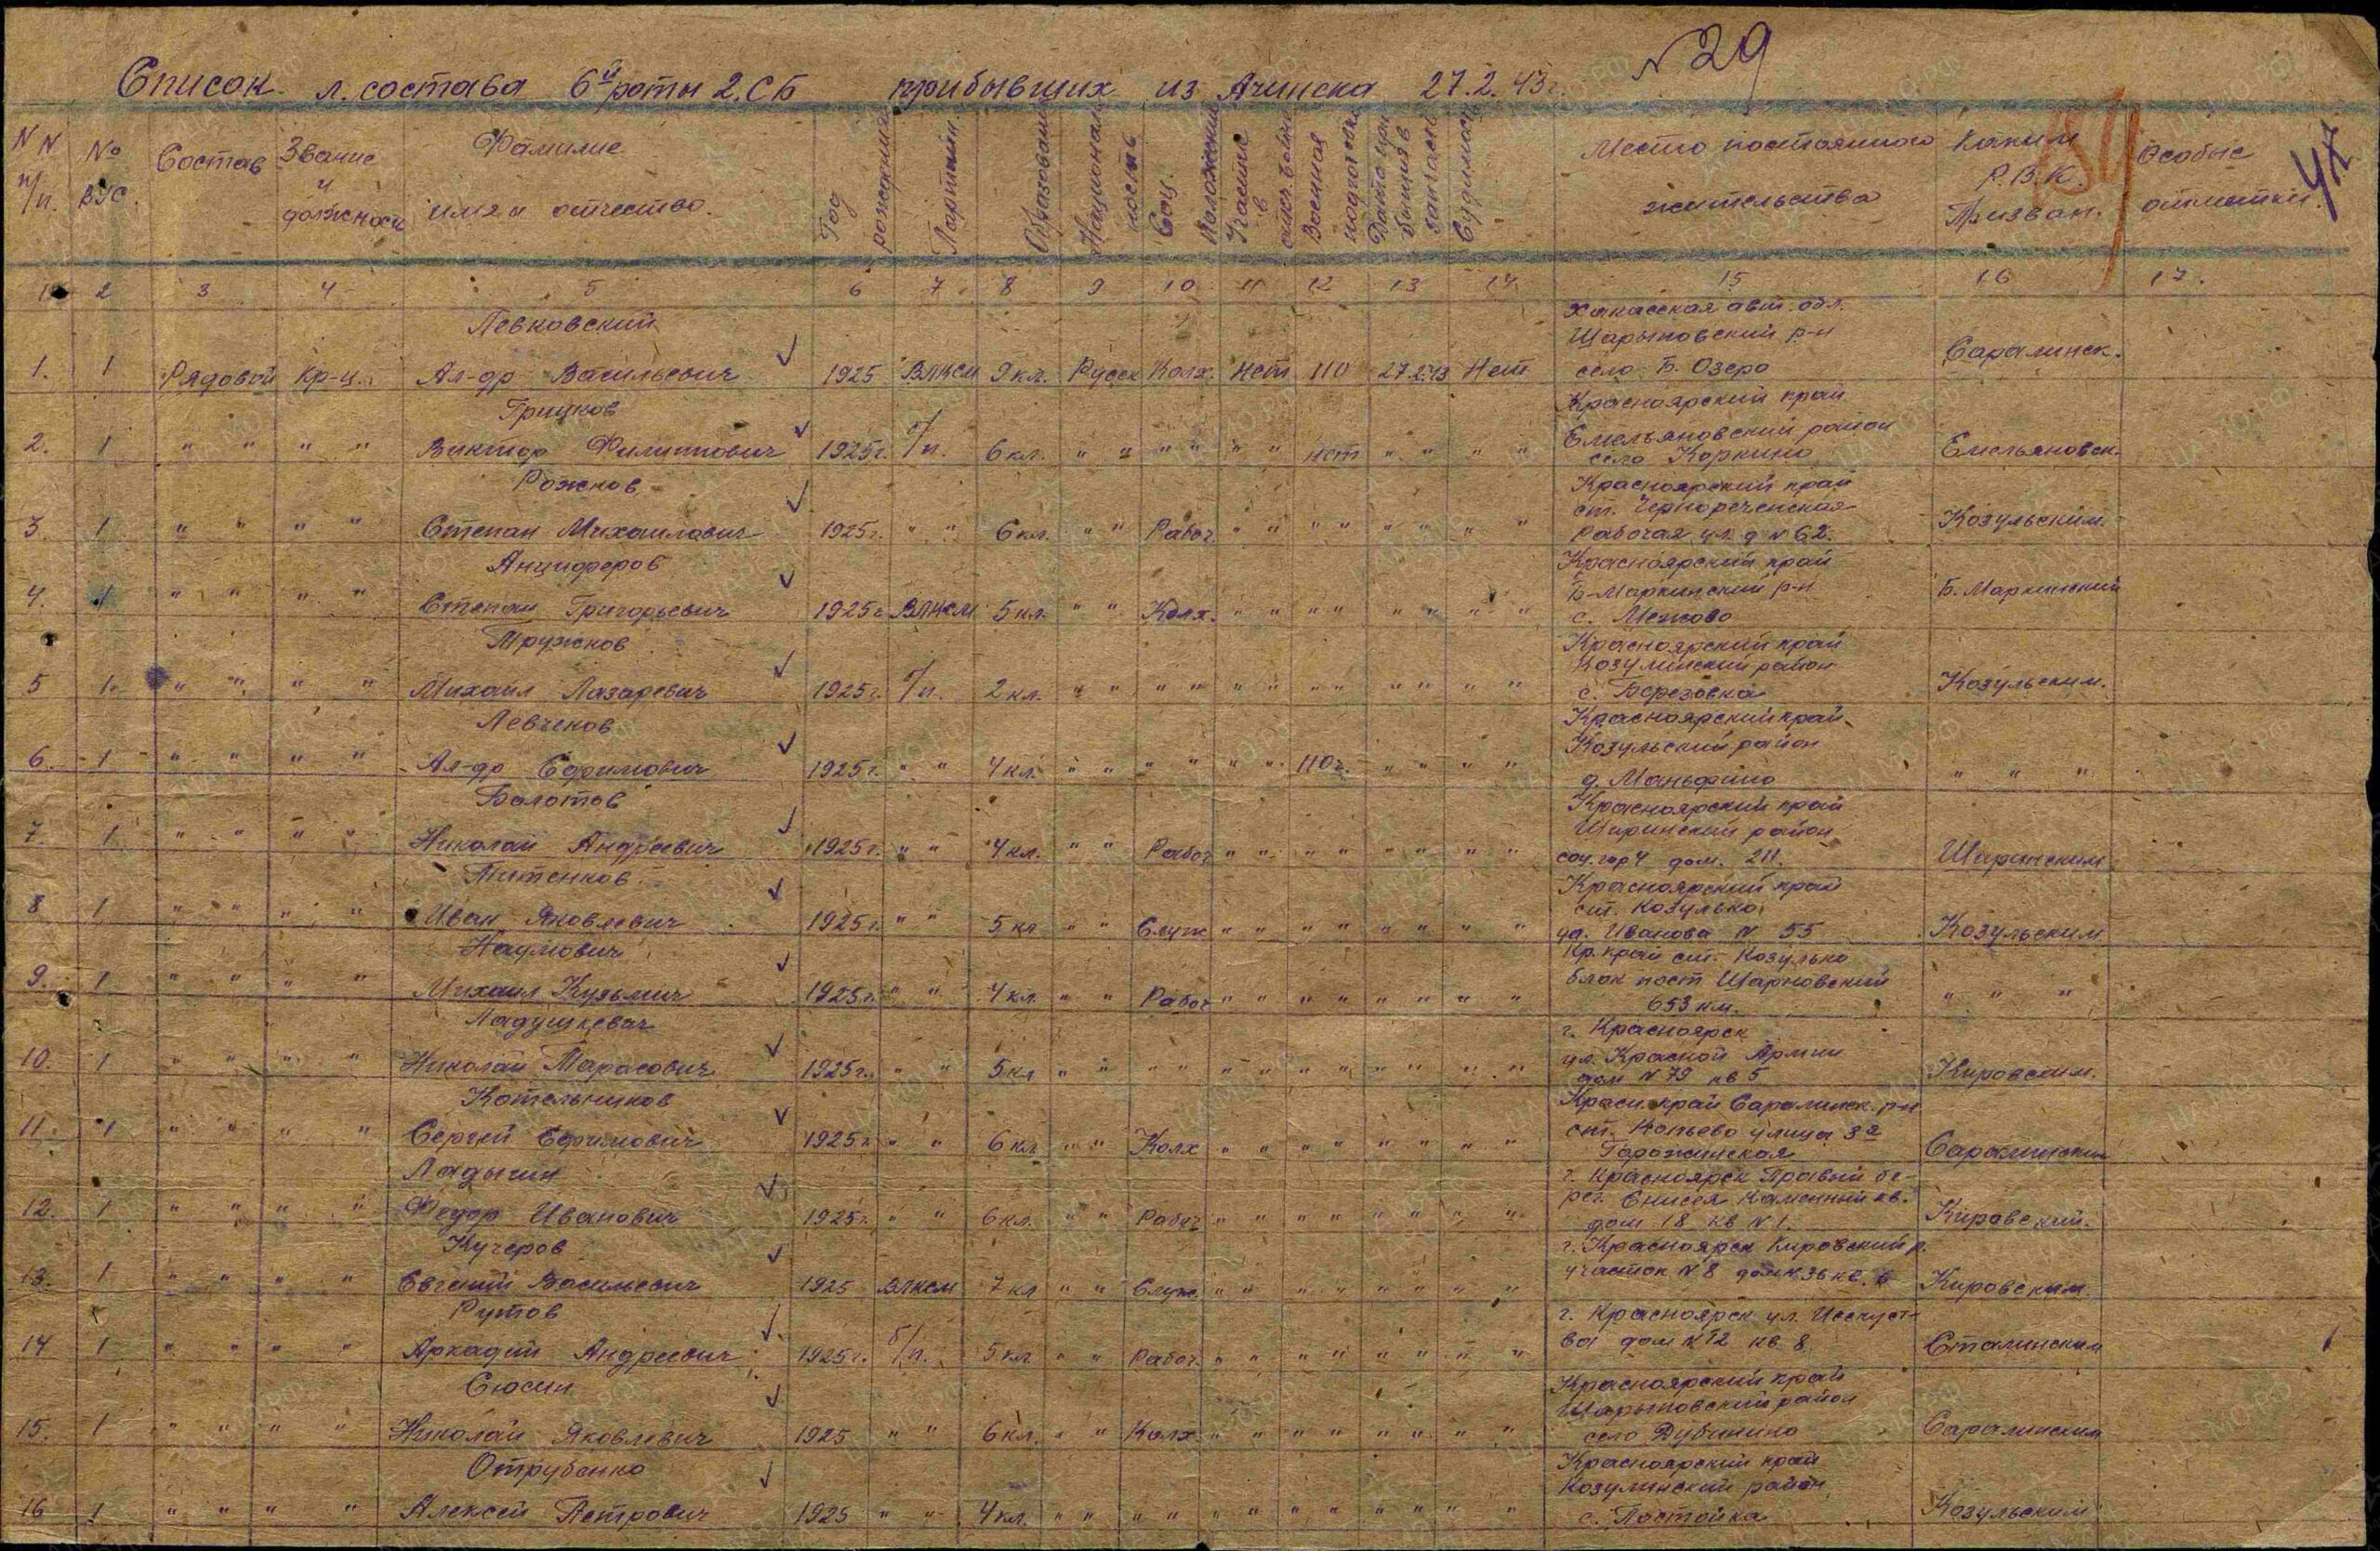 № 29
Список л. состава 6й роты 2. СБ прибывших из Ачинска 27.2.43г.
84
47
NN п/п. № ВУС. Состав Звание и должность Фамилие имя и отчество. Год рождения Партийн. Образован. Национальность Соц. положение Военная подготовка Судимость Место постоянного жительства Каким Р.В.К. Призван. Особые отметки
1 2 3 4 5 6 7 8 9 10 11 12 13 14 15 16 17.
Левковский Хакасская авт. обл.
Шарыповский р-н
1. 1 Рядовой Кр-ц. Ал-др Васильевич 1925 ВЛКСМ 9 кл. Русск Колх. Нет 110 27.2.43 Нет село Б. Озеро Саралинск.
Грицков Красноярский край
Емельяновский район
2. 1 " " " " Виктор Филиппович 1925г. б/п. 6 кл. " " " " " " нет " " " " село Коркино Емельяновск.
Рожков Красноярский край
ст. Чернореченская
3. 1 " " " " Степан Михаилович 1925г. " " 6 кл. " " Рабоч. " " " " " " " " Рабочая ул. д № 62. Козульским.
Анциферов Красноярский край
Б-Муртинский р-н
4. 1 " " " " Степан Григорьевич 1925г ВЛКСМ 5 кл. " " Колх. " " " " " " " " с. Межово
Тружков Красноярский край
Козулинский район
5 1 " " " " Михаил Лазаревич 1925г. б/п. 2 кл. " " " " " " " " " " " " с. Березовка Козульским.
Левченков Красноярский край
Козульский район
6. 1 " " " " Ал-др Ефимович 1925г. " " 4 кл. " " " " " " 110г. " " " " д. " " "
Болотов Красноярский край
Ширинский район
7. 1 " " " " Николай Андреевич 1925г. " " 4 кл. " " Рабоч " " " " " " " " соц. гор 4 дом. 211. Ширинским
Питенков Красноярский край
ст. Козулька
8 1 " " " " Иван Яковлевич 1925г. " " 5 кл " " Служ " " " " " " " " ул. Иванова № 55 Козульским
Наумович Кр. край ст. Козулька
блок пост Шарловский
9. 1 " " " " Михаил Кузьмич 1925г. " " 4 кл. " " Рабоч " " " " " " " " 653 км. " " "
Ладушкевич г. Красноярск
ул. Красной Армии
10. 1 " " " " Николай Тарасович 1925г. " " 5 кл " " " " " " " " " " " " дом № 79 кв 5 Кировским.
Котельников Красн. край Саралинск. р-н
ст. Копьево улица 3я
11. 1 " " " " Сергей Ефимович 1925г. " " 6 кл " " Колх " " " " " " " " Саралинским
Ладыгин г. Красноярск Правый бе-
рег. Енисея Каменный кв.
12. 1 " " " " Федор Иванович 1925г. " " 6 кл. " " Рабоч " " " " " " " " дом 18 кв № 1. Кировский.
Кучеров г. Красноярск Кировский р.
13. 1 " " " " Евгений Васильевич 1925 ВЛКСМ 7 кл " " Служ. " " " " " " " " участок № 8 дом № 36 кв. 6 Кировским.
Рутов г. Красноярск ул. Исскуст-
14 1 " " " " Аркадий Андреевич 1925г. б/п. 5 кл " " Рабоч. " " " " " " " " ва дом № 12 кв 8. Сталинским
Сюсин Красноярский край
Шарыповский район
15. 1 " " " " Николай Яковлевич 1925 " " 6 кл. " " Колх. " " " " " " " " село Дубинино Саралинским
Отрубенко Красноярский край
Козулинский район
16 1 " " " " Алексей Петрович 1925 " " 4 кл. " " " " " " " " " " " " с. Постойка Козульским